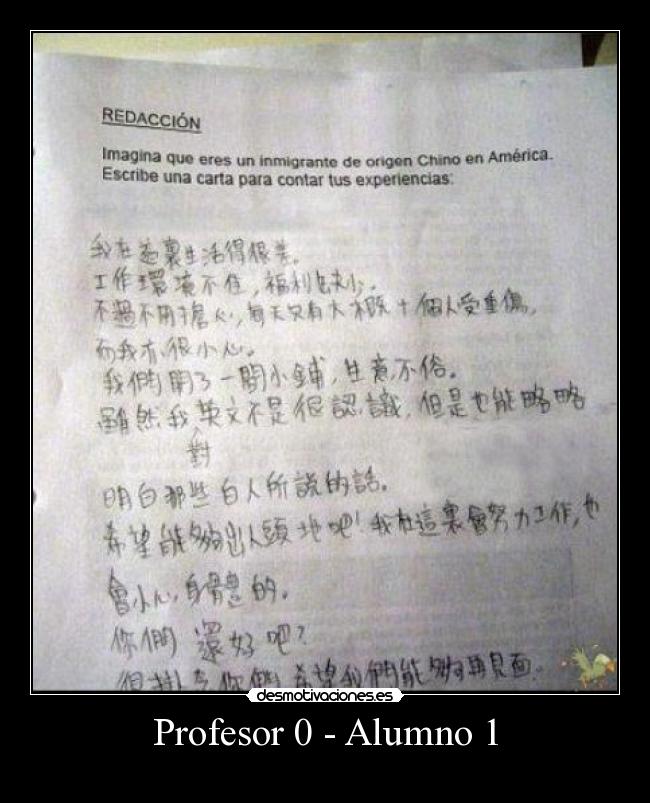 REDACCIÓN
Imagina que eres un inmigrante de origen Chino en América.
Escribe una carta para contar tus experiencias:
我在這裏生活得很差。
工作環境不佳,福利也缺少。
不過不用擔心,每天只有大概十個人受重傷,
而我亦很小心。
我們開了一間小鋪,生意不俗。
雖然我英文不是很認識,但是也能略略
對
明白那些白人所說的話。
希望能夠出人頭地吧!我在這裏會努力工作,也
會小心身體的。
你們還好吧?
很掛念你們,希望我們能夠再見面。
desmotivaciones.es
Profesor 0 - Alumno 1